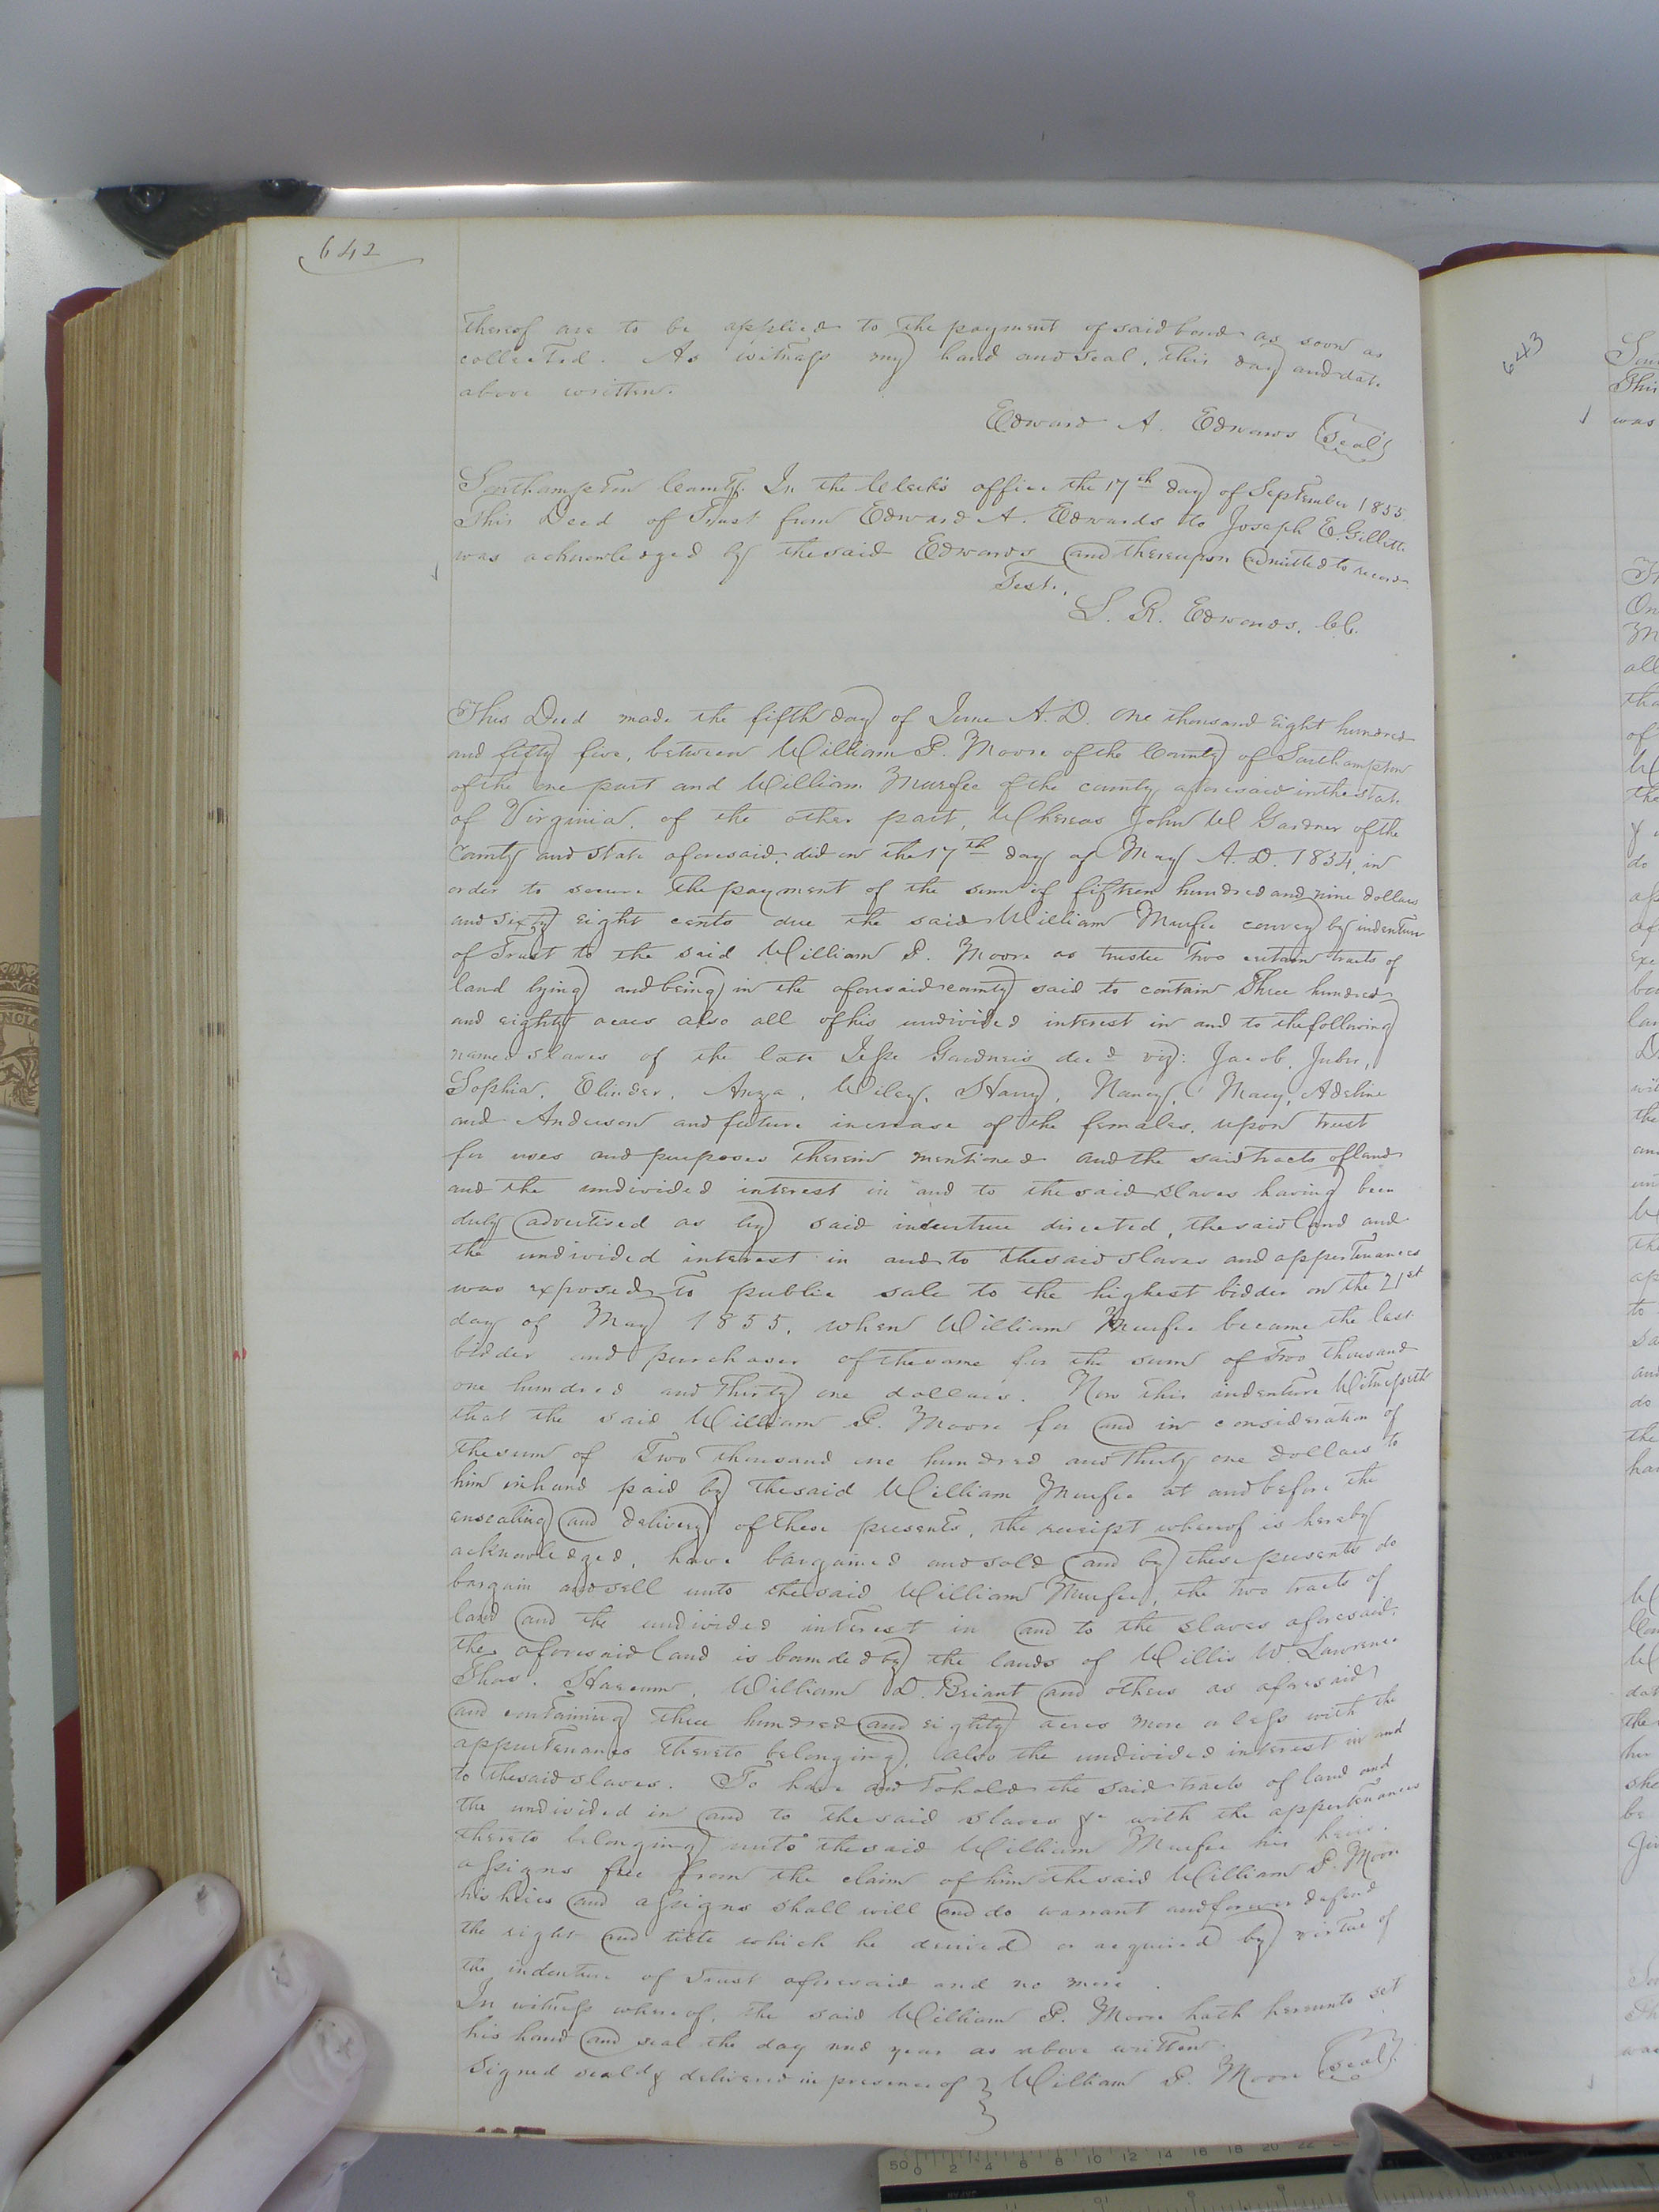 642
thereof are to be applied to the payment of said bond as soon as
collected. As witness my hand and seal, this day and date
above written.
Edward A. Edwards (Seal)
Southampton County. In the Clerk's office the 17th day of September 1855
This Deed of Trust from Edward A. Edwards to Joseph E. Gillette
was acknowledged by the said Edwards and thereupon admitted to record.
Test.,
L. R. Edwards. C.C.
This Deed made the fifth day of June A. D. One thousand eight hundred
and fifty five, between William P. Moore of the County of Southampton
of the one part and William Murfee of the county aforesaid in the state
of Virginia. of the other part, Whereas John W Gardner of the
County and State aforesaid. did on the 17th day of May A. D. 1834, in
order to secure the payment of the sum of fifteen hundred and nine dollars
and sixty eight cents due the said William Murfee convey by indenture
of Trust to the said William P. Moore as trustee two certain tracts of
land lying and being in the aforesaid county said to contain Three hundred
and eighty acres also all of his undivided interest in and to the following
named slaves of the late Jesse Gardner's dec'd viz: Jacob, Juber,
Sophia, Elinder, Anza, Wiley, Harry, Nancy, Mary, Adeline
and Anderson and future increase of the females, upon trust
for uses and purposes therein mentioned and the said tracts of land
and the undivided interest in and to the said slaves having been
duly advertised as by said indenture directed, the said land and
the undivided interest in and to the said slaves and appertenances
was exposed to public sale to the highest bidder on the 21st
day of May 1855, when William Murfee became the last
bidder and purchaser of the same for the sum of Two thousand
one hundred and thirty one dollars. Now this indenture Witnesseth
that the said William P. Moore for and in consideration of
the sum of Two thousand one hundred and thirty one dollars to
him in hand paid by the said William Murfee at and before the
ensealing and delivery of these presents, the receipt whereof is hereby
acknowledged, have bargained and sold and by these presents do
bargain and sell unto the said William Murfee, the two tracts of
land and the undivided interest in and to the slaves aforesaid.
the aforesaid land is bounded by the lands of Willis W. Lawrence
Thos. Harcum, William D. Briant and others as aforesaid
and containing three hundred and eighty acres more or less with the
appurtenances thereto belonging, also the undivided interest in and
to the said slaves. To have and to hold the said tracts of land and
the undivided in and to the said slaves &c with the appertenances
thereto belonging unto the said William Murfee his heirs.
assigns free from the claim of him the said William P. Moore
his heirs and assigns shall will and do warrant and forever defend
the right and title which he derived or acquired by virtue of
the indenture of Trust aforesaid and no more.
In witness whereof, the said William P. Moore hath hereunto set
his hand and seal the day and year as above written.
Signed seald & delivered in presence of } William P. Moore (Seal)
643
Sou
This
was
50 0 2 4 6 8 10 12 14 16 18 20 22